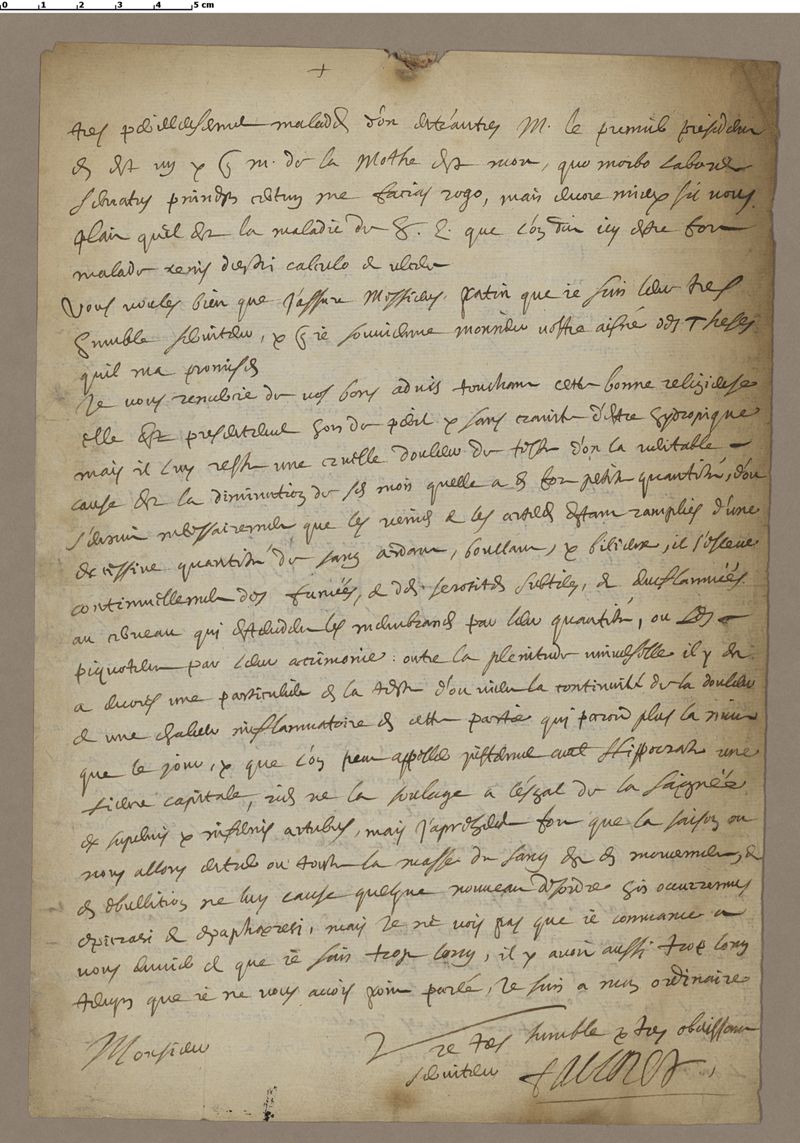 0 1 2 3 4 5 cm
+
tres malade d'on M. le premier president
est m. de la Mothe est mort, quo morbo
me facias rogo, mais encore mieux s'il vous
plait quil est la maladie du que l'on dit icy estre fort
malade calculo
Vous voules bien que j'assure Messieurs Patin que ie suis leur tres
humble serviteur, monsieur vostre aisné des Theses
quil ma promises
Je vous remercie de vos bons advis touchant cette bonne religieuse
elle est presentement hors de peril sans crainte d'estre hydropique
mais il luy reste une cruelle douleur de teste d'on la veritable
cause est la diminution de ses mois quelle a en fort petite quantité, d'ou
s'ensuit necessairement que les veines et les arteres estant ramplies d'une
excessive quantité de sang ardant, boullant, bilieux, il s'esleve
continuellement des fumées, et des serosites subtiles, et enflammées
au cerveau qui estendent les membranes par leur quantité, ou les
piquotent par leur acrimonie. outre la plenitude universelle il y en
a encores une particuliere en la teste d'ou vient la continuité de la douleur
et une chaleur inflammatoire en cette partie qui paroist plus la nuit
que le jour, que l'on peut appeller justement avec Hippocrate une
fievre capitale, rien ne la soulage a l'esgal de la saignée
ex superis inferis artubus, mais j'aprehende fort que la saison ou
nous allons entrer ou toute la masse du sang est en mouvement, et
en ebullition ne luy cause quelque nouveau desordre his occurremus
mais je ne vois pas que ie commance a
vous et que ie suis trop long, il y avoit aussi trop long
temps que ie ne vous avois point parlé, Je suis a mon ordinaire
Monsieur
tres humble tres obeissant
serviteur Falconet